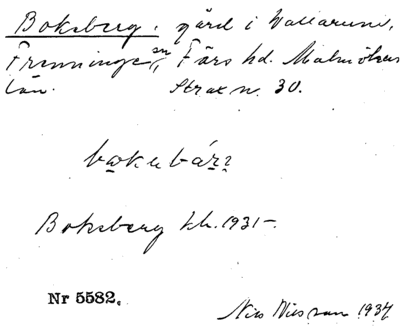 Boksberg, gård i Vallarum,
Frenninge sn, Färs hd. Malmöhus
län. Strax n. 30.
Boksberg kb. 1931-.
Nr 5582.
Nils Nilsson 1937